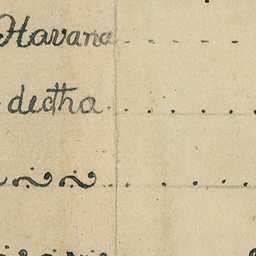 Havana
dectha